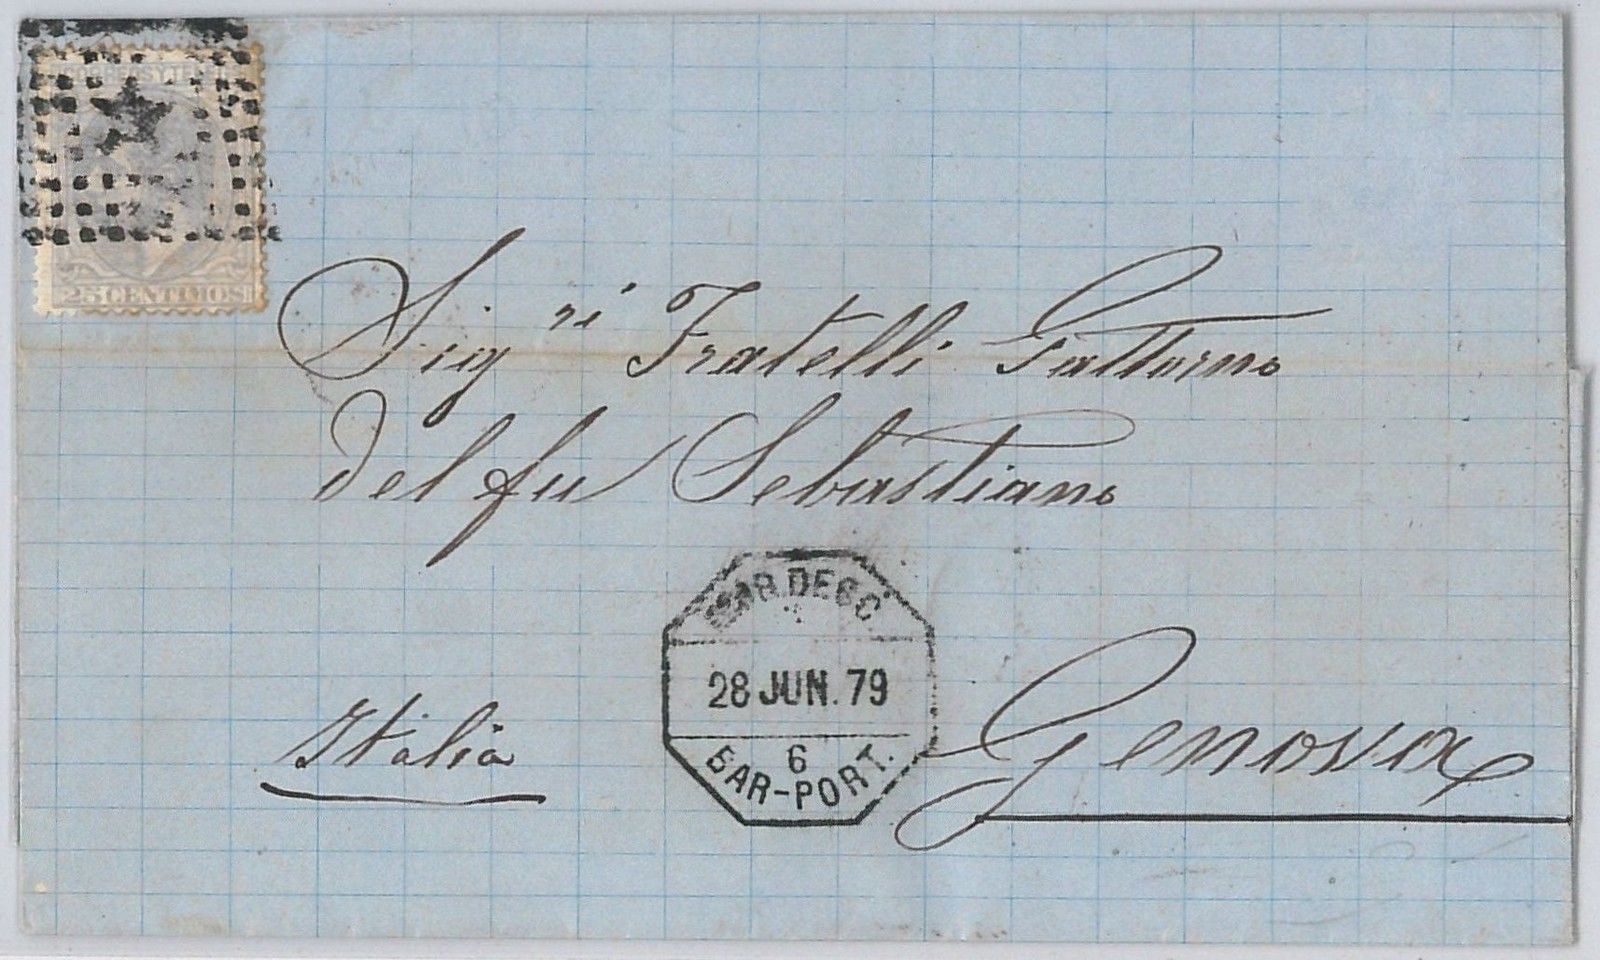 25 CENTIMOS
Sig.ri Fratelli Gattorno
del fu Sebastiano
DESC.
28 JUN. 79
6
BAR-PORT.
Italia
Genova